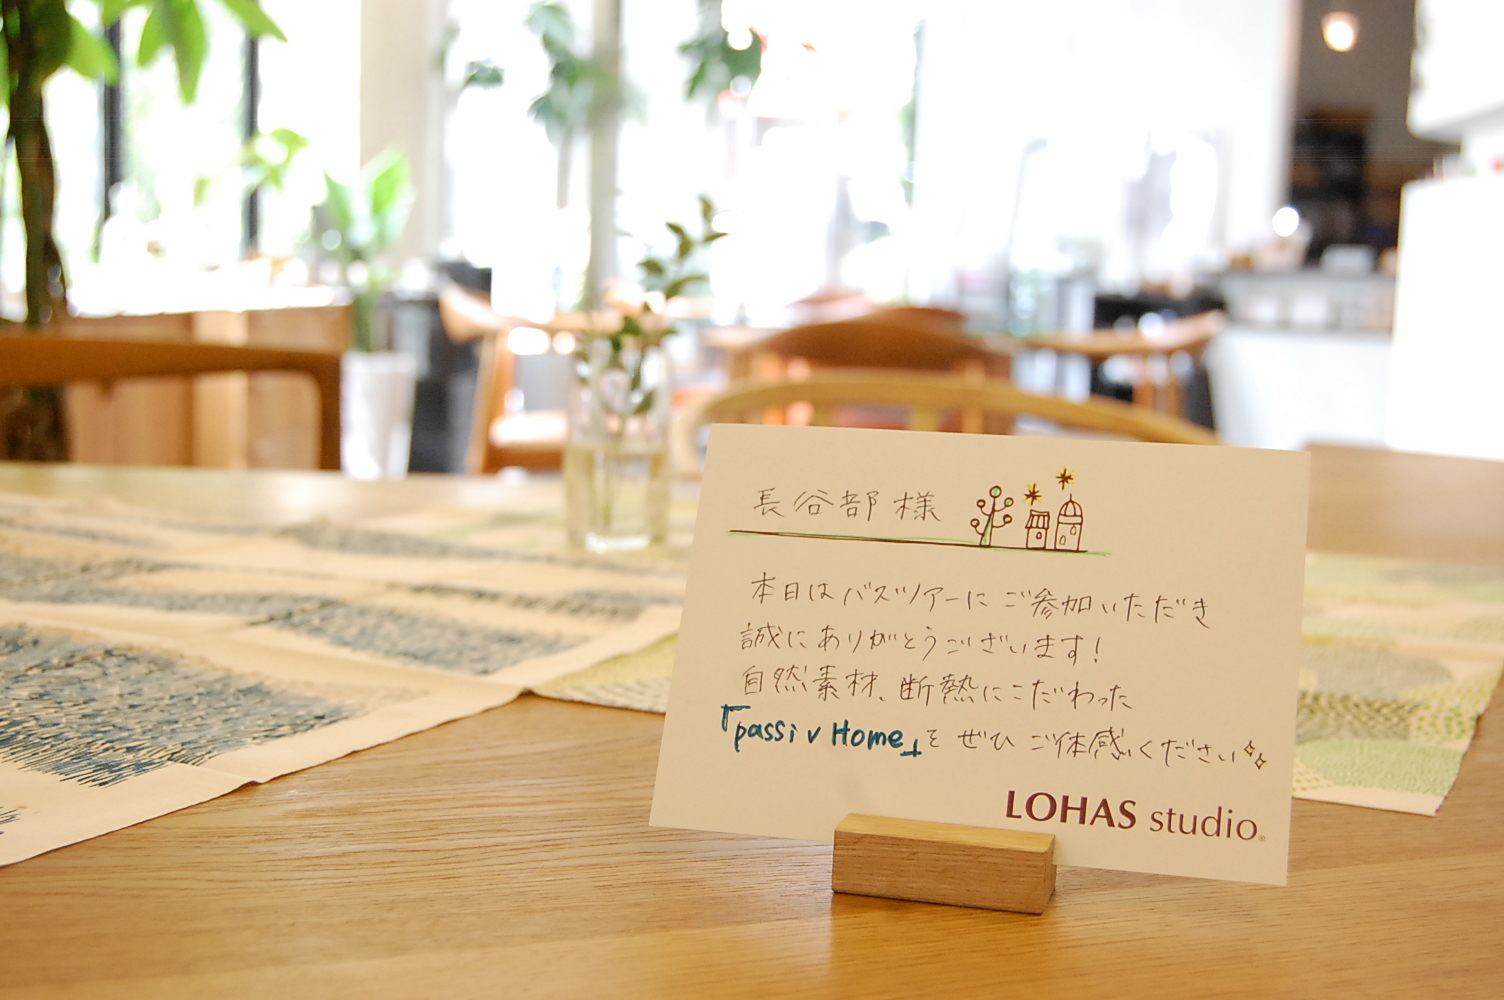 長谷部様
本日はバスツアーにご参加いただき
誠にありがとうございます!
自然素材、断熱にこだわった
「passiv Home」をぜひご体感ください
LOHAS studio®